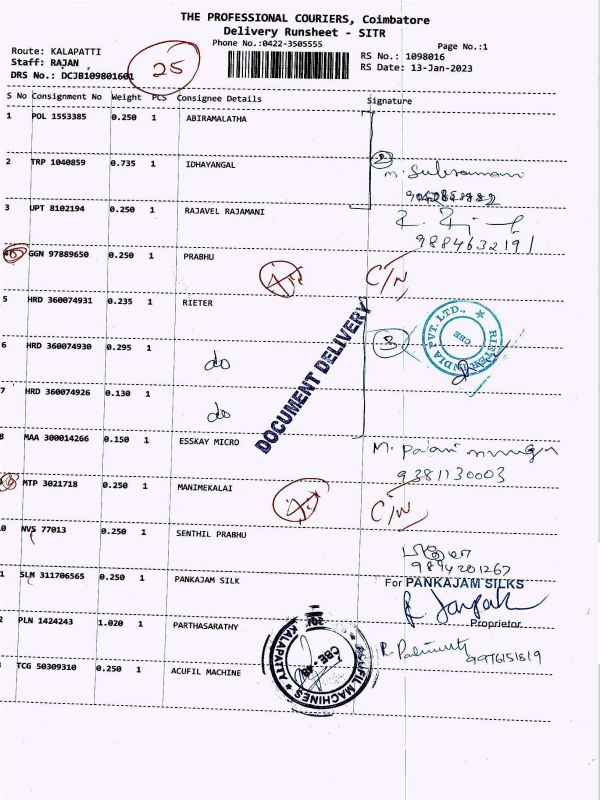 THE PROFESSIONAL COURIERS, Coimbatore
Delivery Runsheet - SITR
Phone No.:0422-3505555
Page No.:1
Route: KALAPATTI
RS No.: 1098016
Staff: RAJAN
RS Date: 13-Jan-2023
DRS No.: DCJB109801601
25
S No Consignment No Weight PCS Consignee Details Signature
1 POL 1553385 0.250 1 ABIRAMALATHA
2 TRP 1040859 0.735 1 IDHAYANGAL
2
3 UPT 8102194 0.250 1 RAJAVEL RAJAMANI
9884632191
GGN 97889650 0.250 1 PRABHU
C/N
5 HRD 360074931 0.235 1 RIETER
6 HRD 360074930 0.295 1 do
3
RIETER INDIA PVT. LTD., CBE
7 HRD 360074926 0.130 1 do
DOCUMENT DELIVERY
8 MAA 300014266 0.150 1 ESSKAY MICRO
9381130003
MTP 3021718 0.250 1 MANIMEKALAI
C/N
0 NVS 77013 0.250 1 SENTHIL PRABHU
9894201267
1 SLM 311706565 0.250 1 PANKAJAM SILK
For PANKAJAM SILKS
Proprietor
2 PLN 1424243 1.020 1 PARTHASARATHY
9976151819
TCG 50309310 0.250 1 ACUFIL MACHINE
ACUFIL MACHINES KALAPATTI CBE - 48